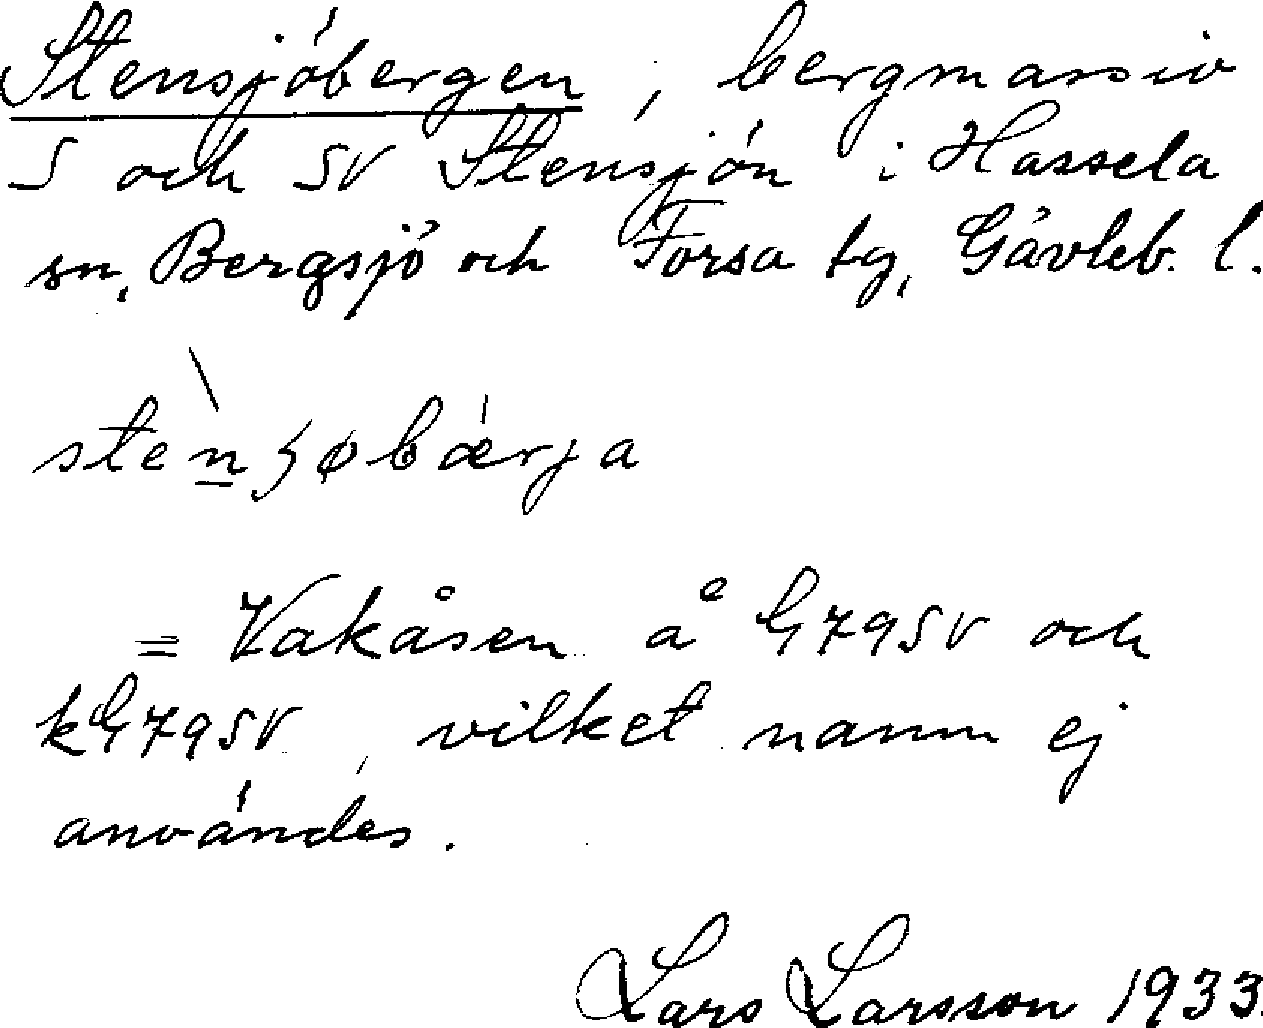 Stensjöbergen, bergmassiv
S och SV Stensjön i Hassela
sn, Bergsjö och Forsa tg, Gävleb. l.
stènʃøbærja
= Vakåsen å G79SV och
kG79SV, vilket namn ej
användes.
Lars Larsson 1933.